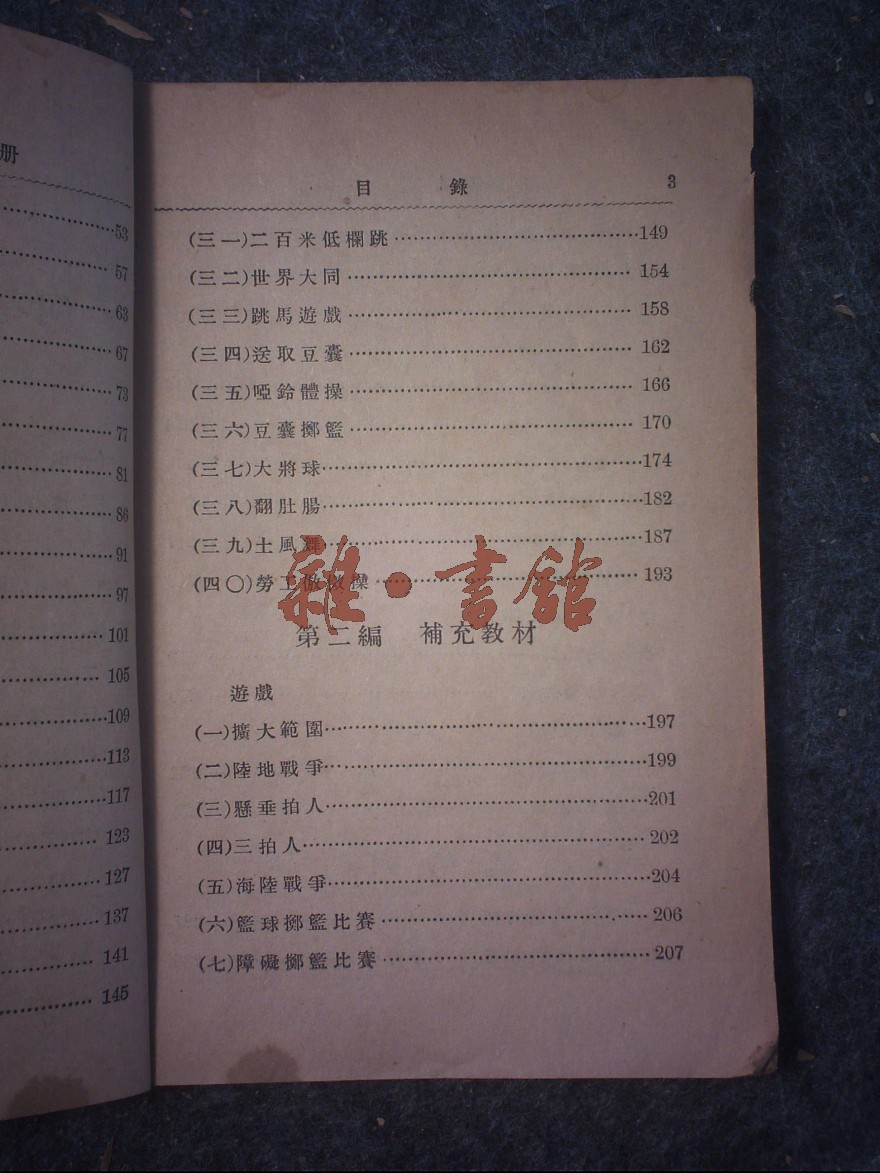 册
53
57
63
67
73
77
81
86
91
97
101
105
109
113
117
123
127
137
141
145
目 錄 3
(三一)二百米低欄跳 149
(三二)世界大同 154
(三三)跳馬遊戲 158
(三四)送取豆囊 162
(三五)啞鈴體操 166
(三六)豆囊擲籃 170
(三七)大將球 174
(三八)翻肚腸 182
(三九)土風舞 187
(四〇)勞工倣傚操 193
雜·書館
第二編 補充教材
遊戲
(一)擴大範圍 197
(二)陸地戰爭 199
(三)懸垂拍人 201
(四)三拍人 202
(五)海陸戰爭 204
(六)籃球擲籃比賽 206
(七)障礙擲籃比賽 207